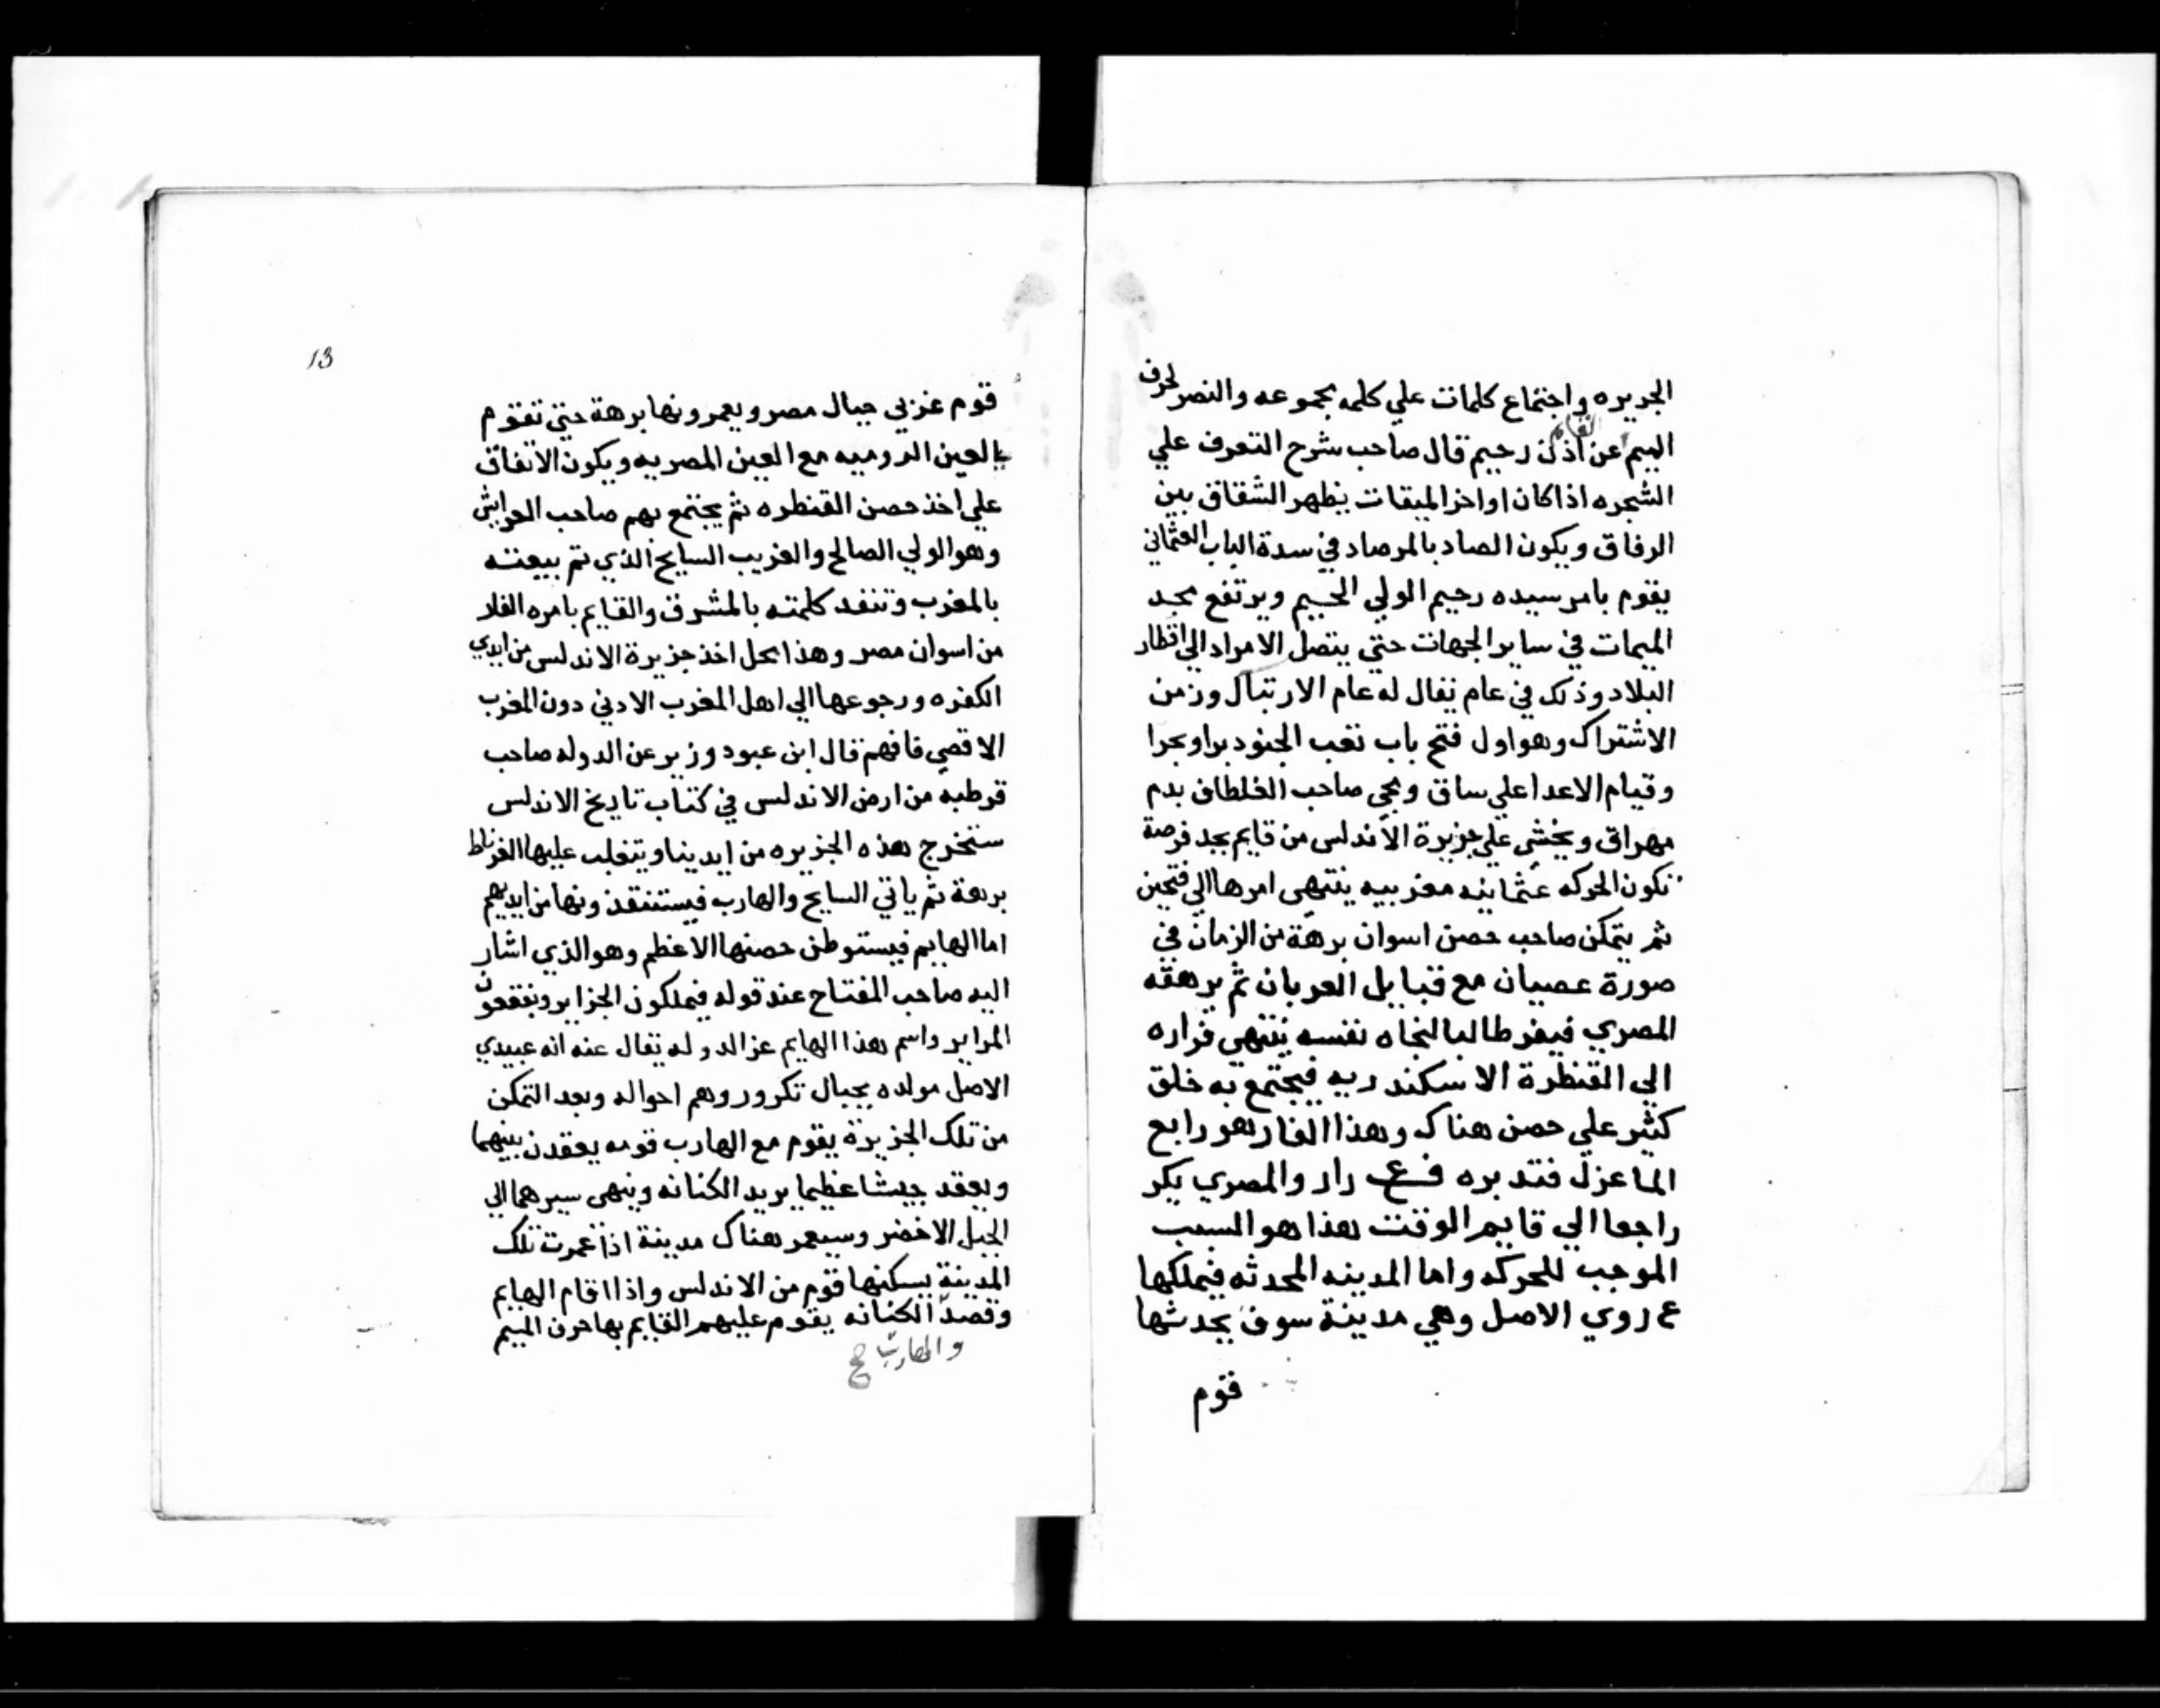 الجزيره واجتماع كلمات علي كلمه مجموعه والنصر لحرف
القايم
الميم عن اذن رحيم قال صاحب شرح التعرف علي
الشجره اذا كان اواخر الميقات يظهر الشقاق بين
الرفاق ويكون الصاد بالمرصاد في سدة الباب العثماني
يقوم بامر سيده رحيم الولي الحميم ويرتفع مجد
الميمات في ساير الجهات حتي يتصل الامراد الي اقطار
البلاد وذلك في عام يقال له عام الارتبال وزمن
الاشتراك وهو اول فتح باب تعب الجنود برا وبحرا
وقيام الاعدا علي ساق ومجي صاحب الغلطاف بدم
مهراق ويخشي علي جزيرة الاندلس من قايم يجد فرصة
تكون الحركه عثمانيه مغربيه ينتهي امرها الي فتحين
ثم يتمكن صاحب حصن اسوان برهة من الزمان في
صورة عصيان مع قبايل العربان ثم يرهقه
المصري فيفر طالبا لنجاه نفسه ينتهي فراره
الي القنطرة الاسكندريه فيجتمع به خلق
كثير علي حصن هناك وهذا الفار هو رابع
الما عزل فتدبره فع راد والمصري يكر
راجعا الي قايم الوقت هذا هو السبب
الموجب للحركه واما المدينه المحدثه فيملكها
ع روي الاصل وهي مدينة سوف يحدثها
قوم
13
قوم غربي جبال مصر ويعمرونها برهة حتي تقوم
العين الروميه مع العين المصريه ويكون الاتفاق
علي اخذ حصن القنطره ثم يجتمع بهم صاحب الحرايش
وهو الولي الصالح والغريب السايح الذي تم بيعته
بالمغرب وتنفد كلمته بالمشرق والقايم بامره الفلار
من اسوان مصر وهذا محل اخذ جزيرة الاندلس من ايدي
الكفره ورجوعها الي اهل المغرب الادني دون المغرب
الاقصي فافهم قال ابن عبود وزير عن الدوله صاحب
قرطبه من ارض الاندلس في كتاب تاريخ الاندلس
ستخرج هذه الجزيره من ايدينا ويتغلب عليها الغرناط
برهة ثم ياتي السايح والهارب فيستنقذونها من ايديهم
اما الهايم فيستوطن حصنها الاعظم وهو الذي اشار
اليه صاحب المفتاح عند قوله فيملكون الجزاير ويفقعون
المراير واسم هذا الهايم عز الدوله يقال عنه انه عبيدي
الاصل مولده بجبال تكرور وهم احواله وبعد التمكن
من تلك الجزيرة يقوم مع الهارب قومه يعقدن بينهما
ويعقد جيشا عظيما يريد الكنانه وينهي سيرهما الي
الجبل الاخضر وسيعمر هناك مدينة اذا عمرت تلك
المدينة يسكنها قوم من الاندلس واذا قام الهايم
وقصد الكنانه يقوم عليهم القايم بها حرف الميم
والهارب صح